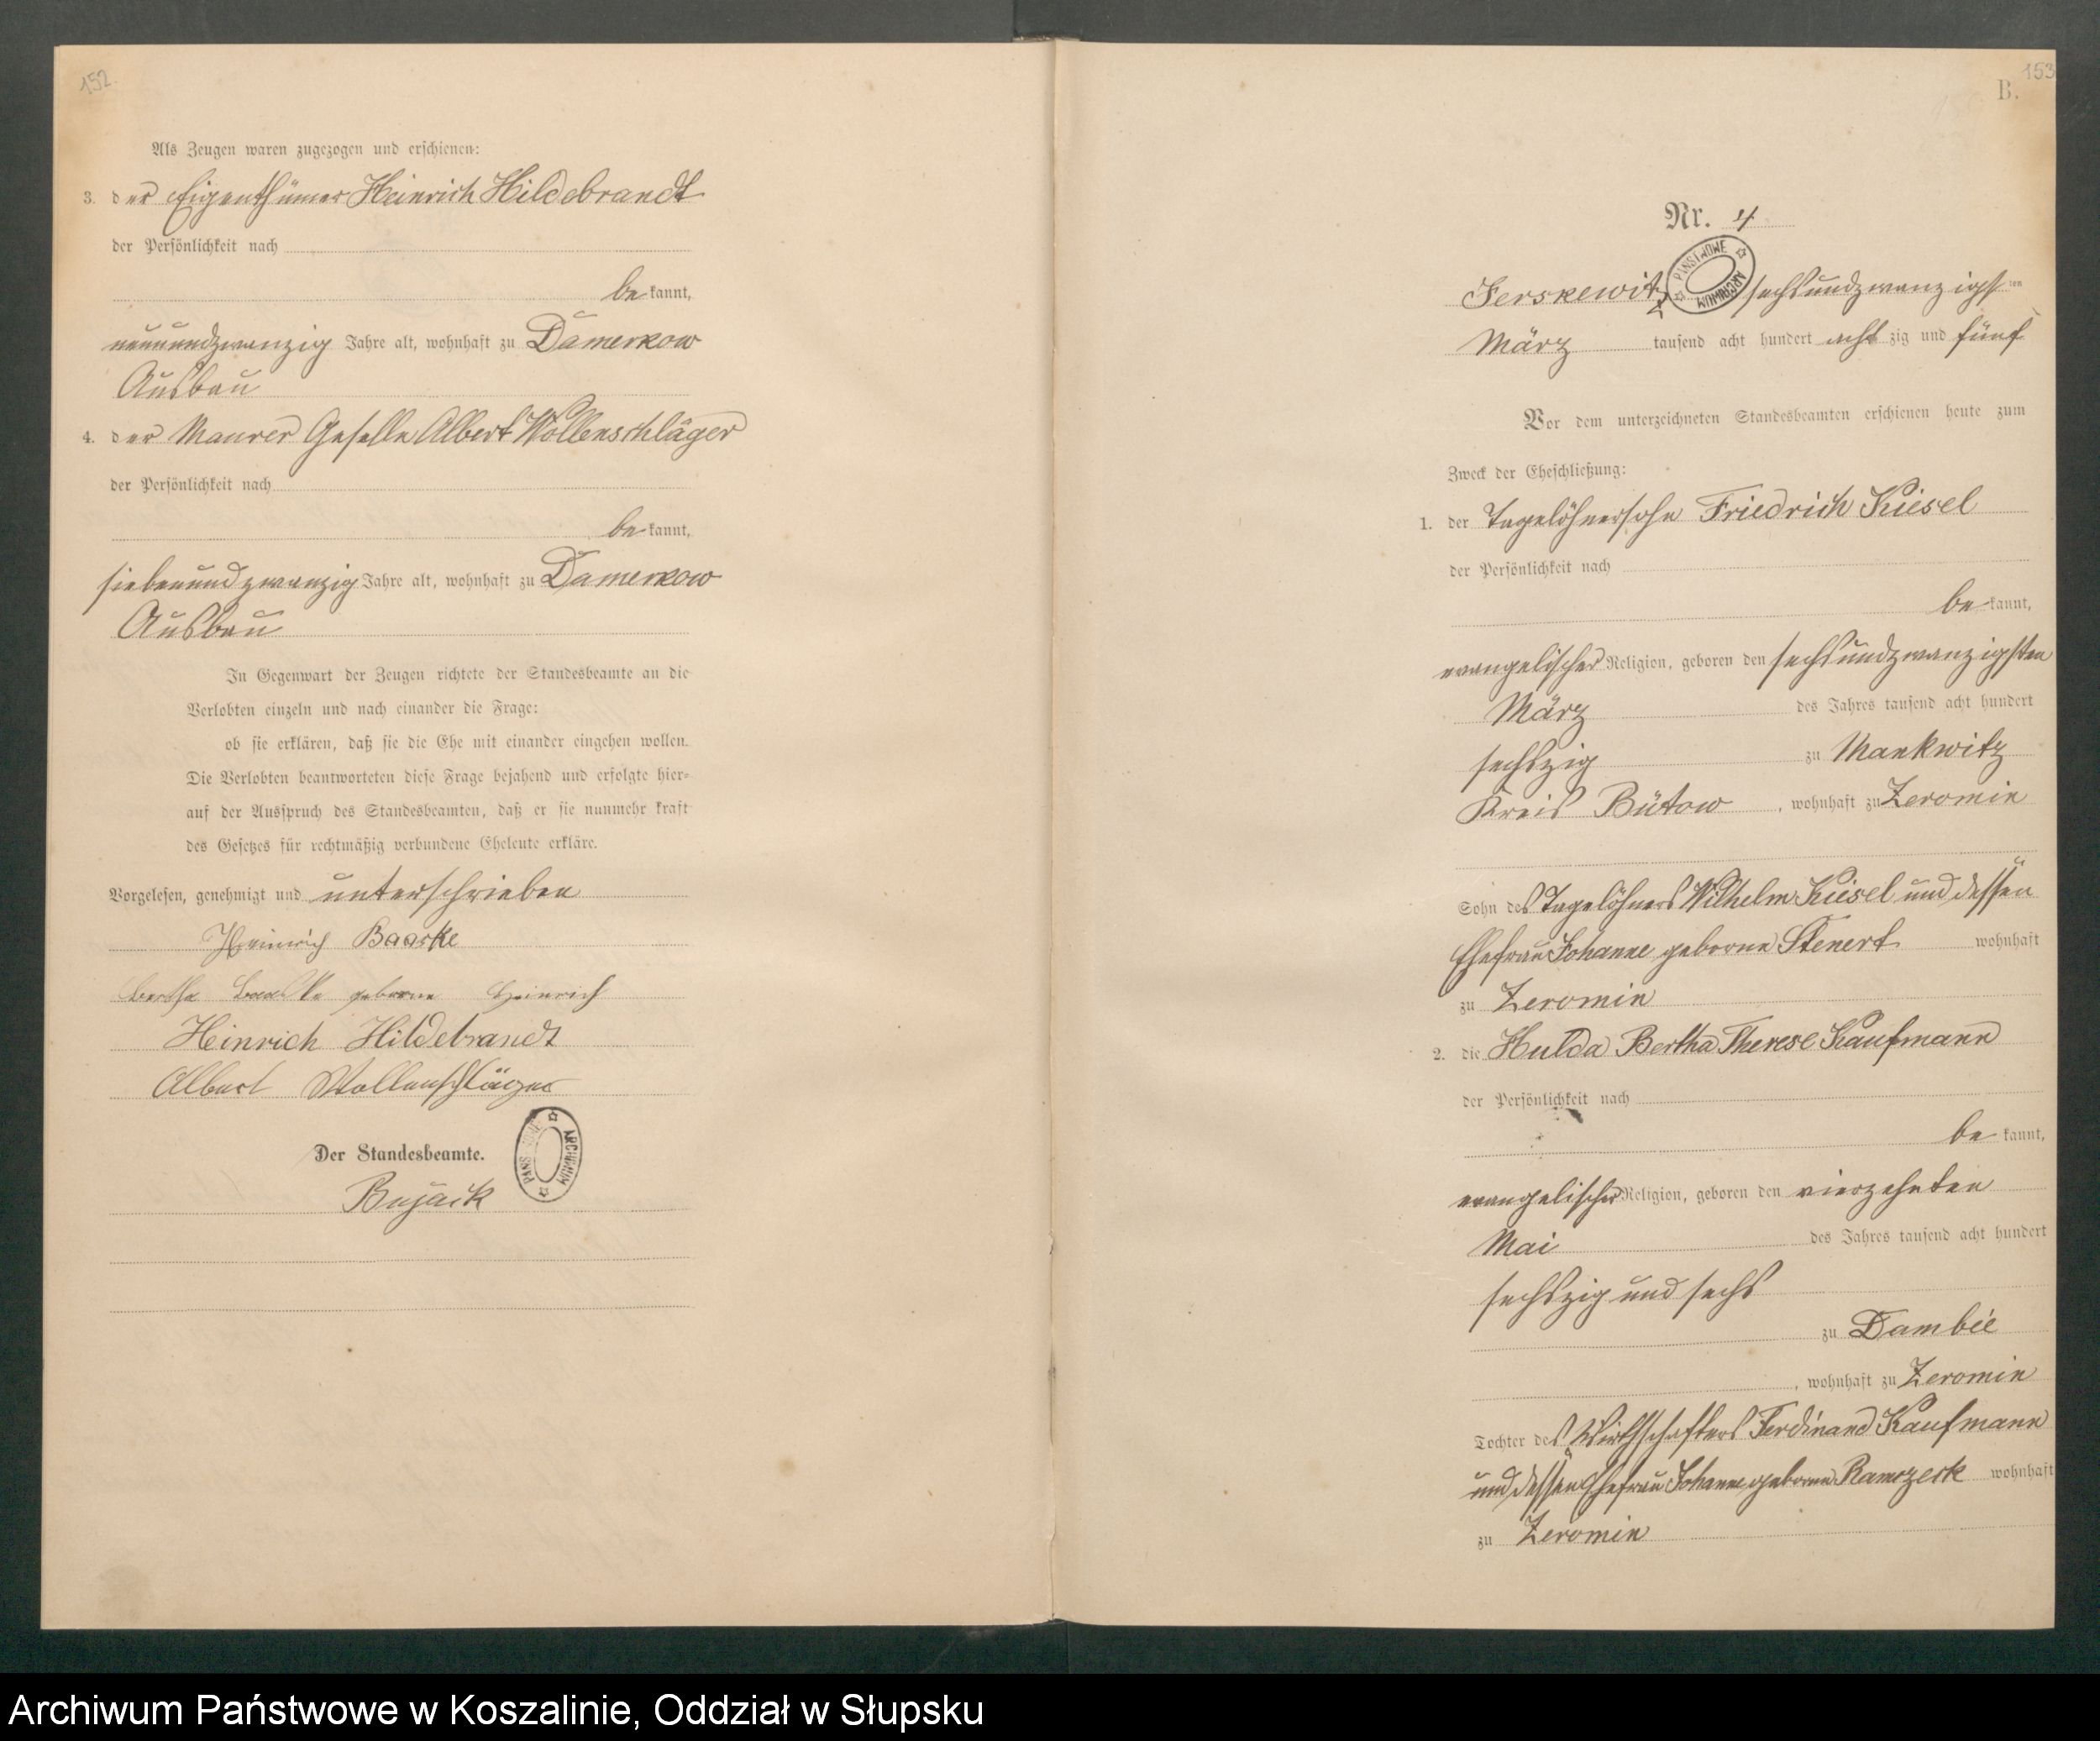 152.
Als Zeugen waren zugezogen und erschienen:
3. der Eigenthümer Heinrich Hildebrandt
der Persönlichkeit nach
be kannt,
neunundzwanzig Jahre alt, wohnhaft zu Damerkow
Ausbau
4. der Maurer Geselle Albert Wollenschläger
der Persönlichkeit nach
be kannt,
siebenundzwanzig Jahre alt, wohnhaft zu Damerkow
Ausbau
In Gegenwart der Zeugen richtete der Standesbeamte an die
Verlobten einzeln und nach einander die Frage:
ob sie erklären, daß sie die Ehe mit einander eingehen wollen.
Die Verlobten beantworteten diese Frage bejahend und erfolgte hier-
auf der Ausspruch des Standesbeamten, daß er sie nunmehr kraft
des Gesetzes für rechtmäßig verbundene Eheleute erkläre.
Vorgelesen, genehmigt und unterschrieben
Heinrich Baaske
Bertha Baaske geborne Heinrich
Heinrich Hildebrandt
Albert Wollenschläger
Der Standesbeamte.
Bujack
153
B.
Nr. 4
Jerskewitz sechsundzwanzigsten
März tausend acht hundert acht zig und fünf
Vor dem unterzeichneten Standesbeamten erschienen heute zum
Zweck der Eheschließung:
1. der Tagelöhnersohn Friedrich Kiesel
der Persönlichkeit nach
be kannt,
evangelischer Religion, geboren den sechsundzwanzigsten
März des Jahres tausend acht hundert
sechszig zu Mankwitz
Kreis Bütow, wohnhaft zu Zeromin
Sohn des Tagelöhners Wilhelm Kiesel und dessen
Ehefrau Johanne geborne Stenert wohnhaft
zu Zeromin
2. die Hulda Bertha Therese Kaufmann
der Persönlichkeit nach
be kannt,
evangelischer Religion, geboren den vierzehnten
Mai des Jahres tausend acht hundert
sechszig und sechs
zu Dambee
, wohnhaft zu Zeromin
Tochter des Wirthschafters Ferdinand Kaufmann
und dessen Ehefrau Johanne geborne Ramczeck wohnhaft
zu Zeromin
Archiwum Państwowe w Koszalinie, Oddział w Słupsku